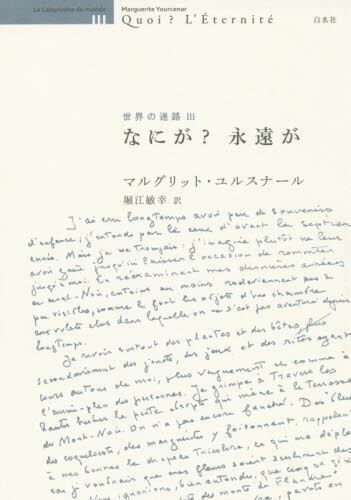 Le Labyrinthe du monde
III
Marguerite Yourcenar
Quoi? L'Éternité
白水社
世界の迷路 III
なにが？ 永遠が
マルグリット・ユルスナール
堀江敏幸 訳
J'ai cru longtemps avoir peu de souvenirs
d'enfance; j'entends par là ceux d'avant la septième
année. Mais je me trompais: j'imagine plutôt ne leur
avoir guère jusqu'ici laissé l'occasion de remonter
jusqu'à moi. En réexaminant mes dernières années
au Mont-Noir, certains au moins redeviennent peu à
peu visibles, comme le font les objets d'une chambre
aux volets clos dans laquelle on ne s'est pas aventuré depuis
longtemps.
Je revois surtout des plantes et des bêtes, plus
secondairement des jouets, des jeux et des rites ayant
cours autour de moi, plus vaguement et comme à
l'arrière-plan des personnes. Je grimpe à travers les
hautes herbes la pente abrupte qui mène à la terrasse
du Mont-Noir. On n'a pas encore fauché. Des bleuets
des coquelicots, des marguerites y foisonnent, rappelant
à mes bonnes le drapeau tricolore, ce qui me déplaît
car je voudrais que mes fleurs soient seulement des